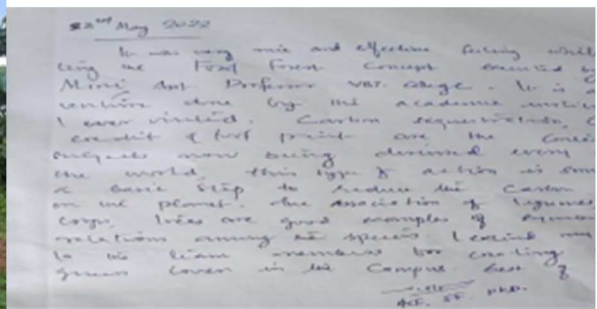 22nd May 2022
It was very nice and effective feeling whil
ting the Food Forest Concept executed by
Mini Asst Professor VBT. College. It is a
vention done by the academic institu
I ever visited. Carbon sequestration, C
credit & foot print are the conce
subjects now being discussed every
the world. This type of action is som
a basic step to reduce the Carbon
on the planet. The association of legumes
crops, trees are good examples of
relations among the species. I extend my
to the team members for creating
green cover in the Campus. Best of
Ph.D.